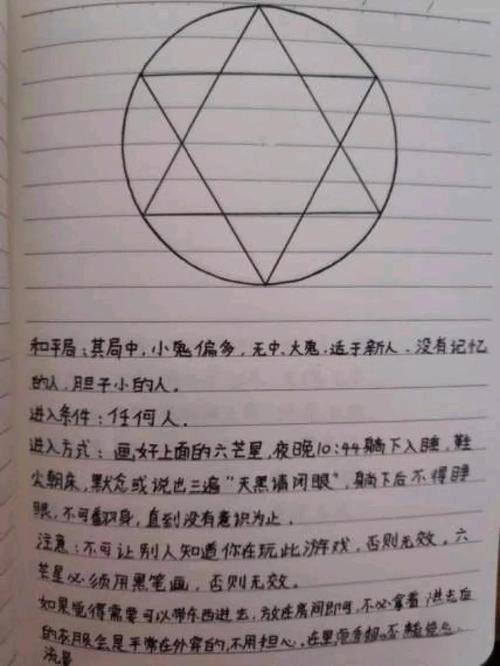 和平局：其局中，小鬼偏多，无中、大鬼．适于新人、没有记忆
的人，胆子小的人．
进入条件：任何人．
进入方式：画好上面的六芒星，夜晚10:44躺下入睡，鞋
尖朝床，默念或说出三遍“天黑请闭眼”，躺下后不得睁
眼，不可翻身，直到没有意识为止．
注意：不可让别人知道你在玩此游戏，否则无效。六
芒星必须用黑笔画，否则无效。
如果觉得需要可以带东西进去，放在房间即可，不必拿着
的衣服会是平常在外穿的，不用担心，在里面
流量